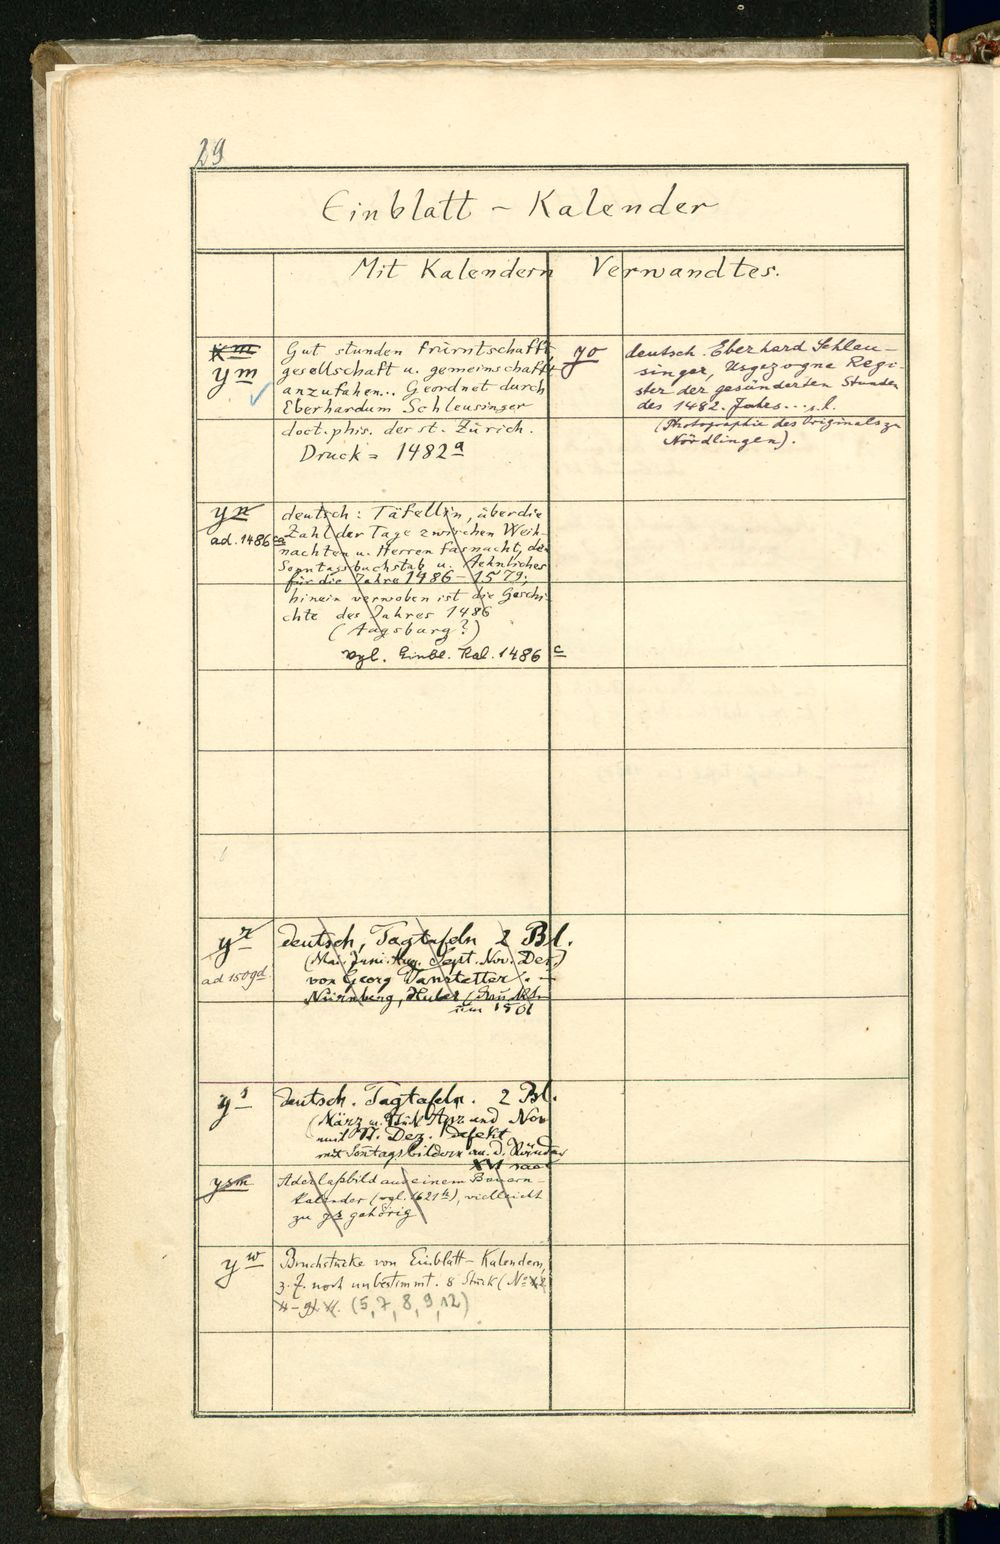 29
Einblatt - Kalender
Mit Kalendern Verwandtes.
y m
Gut stunden früntschafft,
gesellschaft u. gemeinschafft
anzufahen... Geordnet durch
Eberhardum Schleusinger
doct. phis. der st. Zürich.
Druck = 1482 a
yo
deutsch. Eberhard Schleu-
singer, Usgezogne Regi-
ster der gesünderten Stunden
des 1482. Jahrs...
(Photographie des Originals zu
Nördlingen).
y n
ad. 1486 ca
deutsch: Täfellin, über die
Zahl der Tage zwischen Weih-
nachten u. Herren fasnacht, den
Sonntagsbuchstab u. Aehnliches
für die Jahre 1486 - 1579;
hinein verwoben ist die Geschi-
chte des Jahres 1486
(Augsburg?)
Vgl. Einbl. Kal. 1486 c
y r
ad 1509d
deutsch, Tagtafeln 2 Bl.
(Mai. Juni. Aug. Sept. Nov. Dez)
von Georg Tanstetter. -
Nürnberg, Huber
um 1501
y s
deutsch. Tagtafeln. 2 Bl.
(März u. Apr. und Nov
und Dez. defekt
mit Sontagsbildern an. d. Ränder
XVI saec
ysm
Aderlaßbild aus einem Bauern-
kalender (vgl. 1621 b), vielleicht
zu ys gehörig
y w
Bruchstücke von Einblatt-Kalendern,
z. Z. noch unbestimmt. 8 Stück (No
(5, 7, 8, 9, 12)